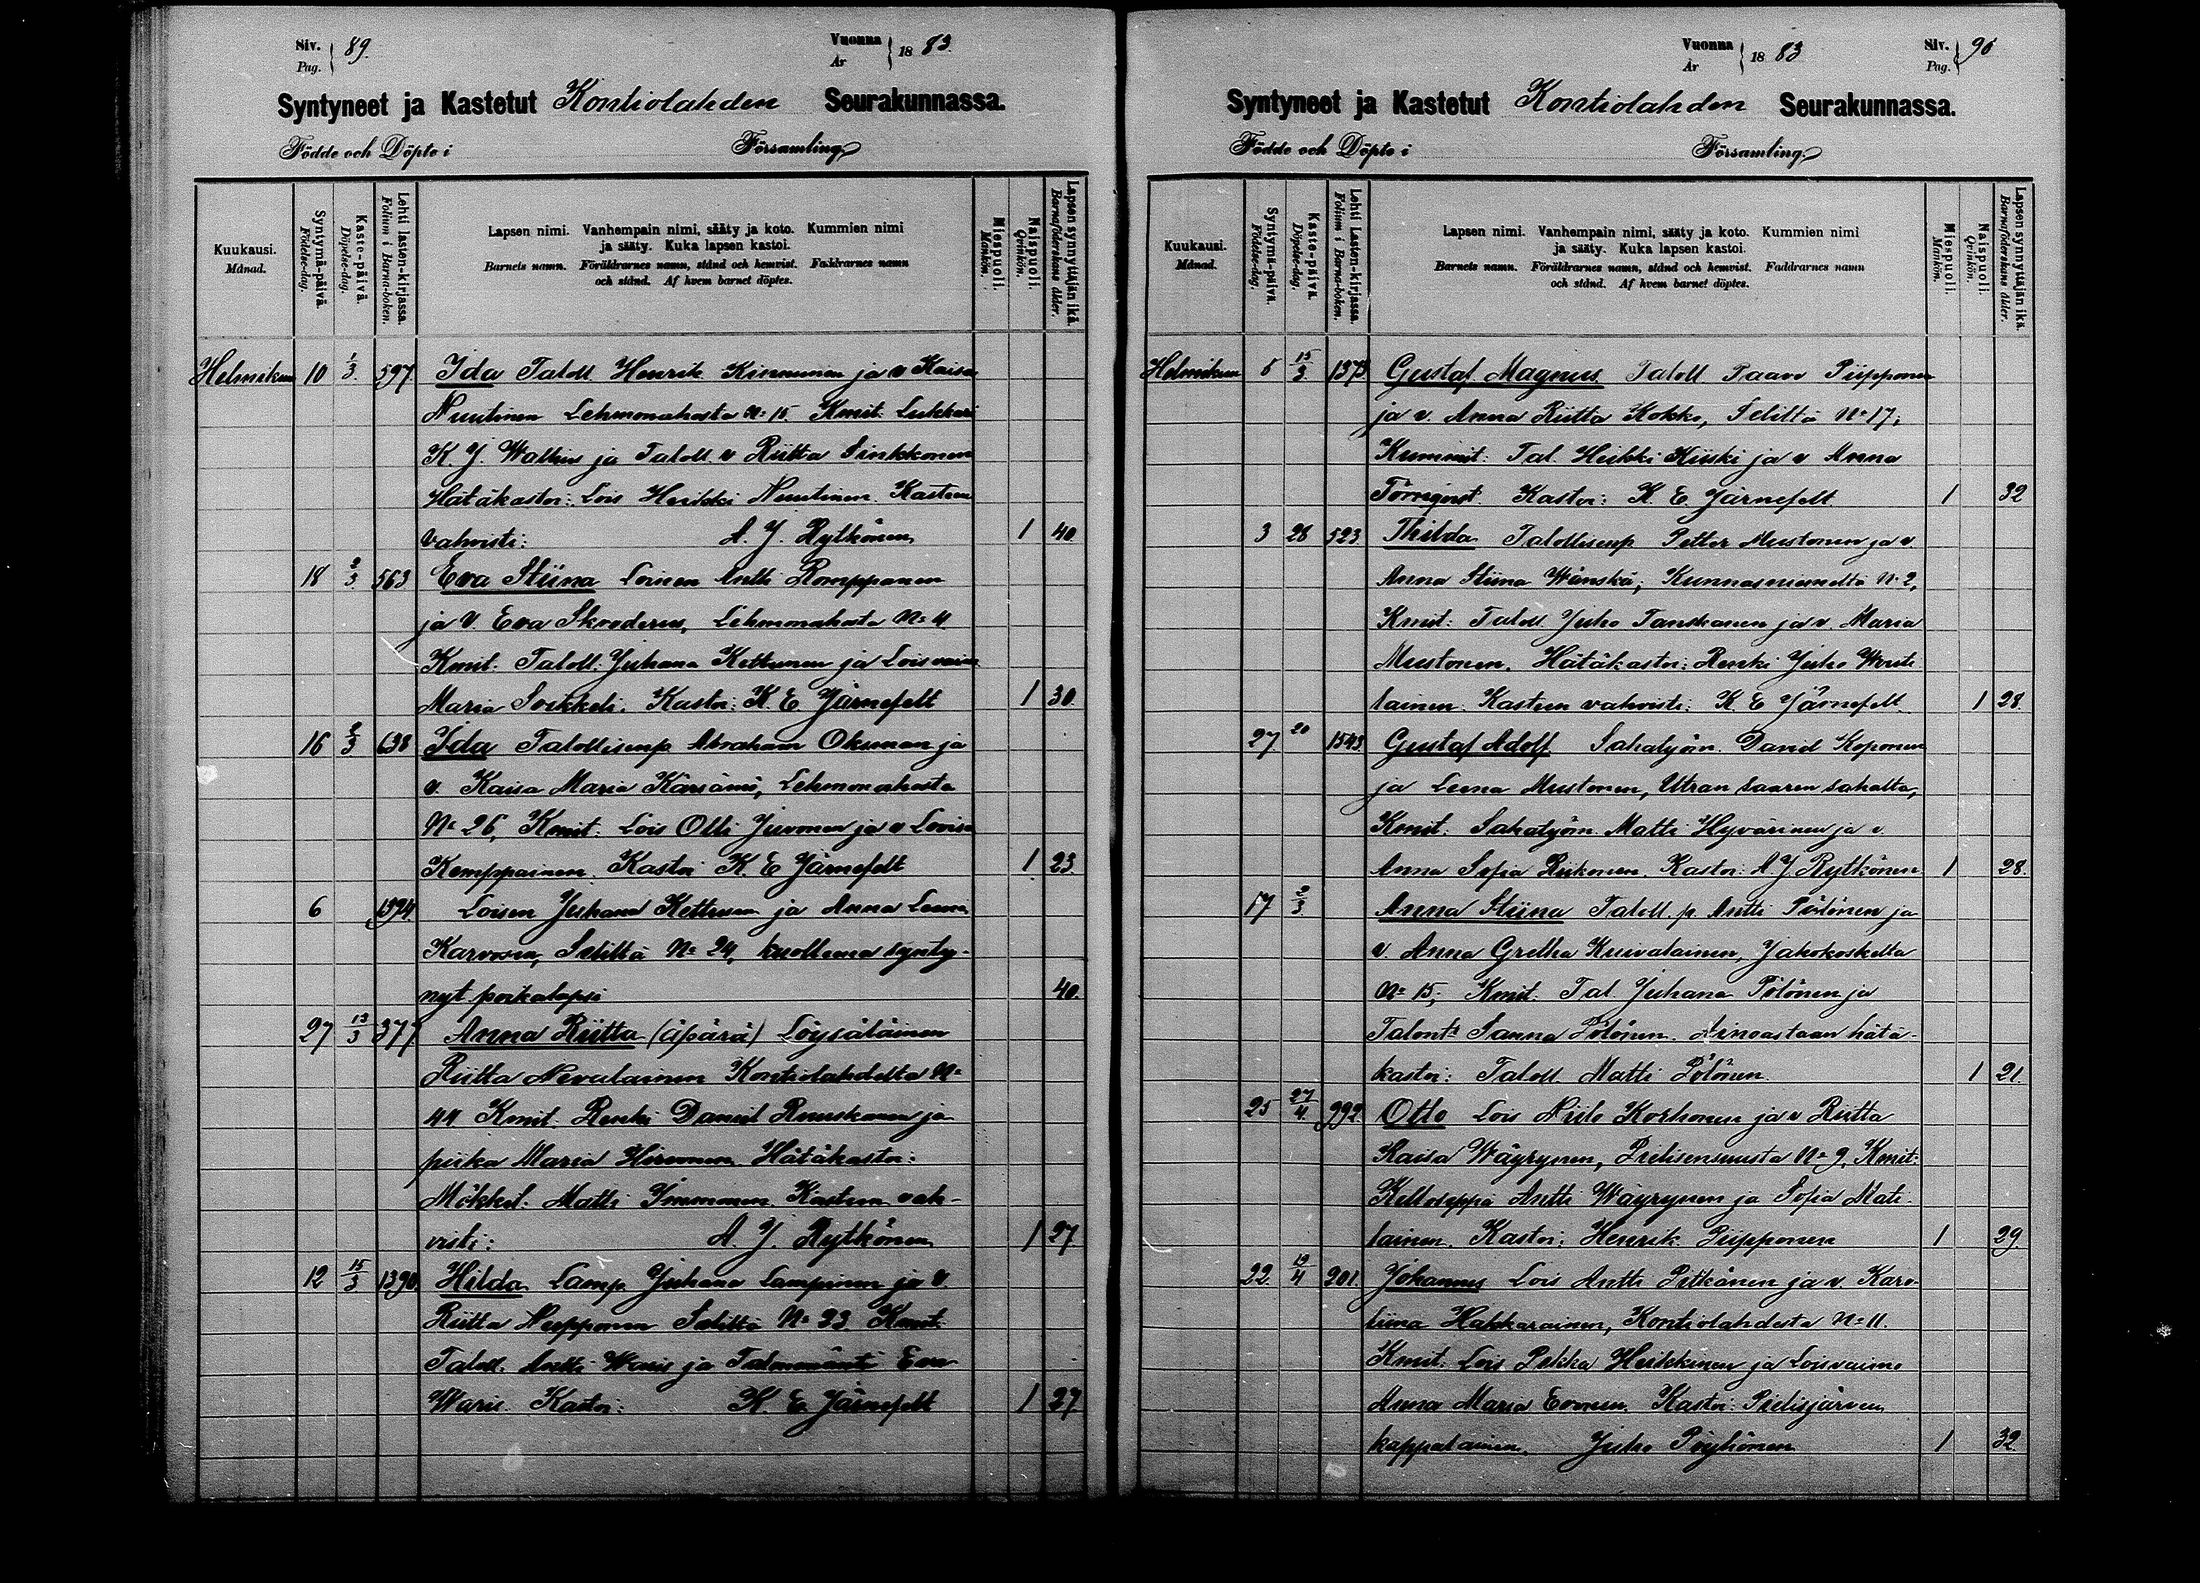 Siv. 89.
Pag.
Vuonna 1883.
År
Syntyneet ja Kastetut Kontiolahden Seurakunnassa.
Födde och Döpte i Församling
Kuukausi.
Månad.
Syntymä-päivä.
Födelse-dag.
Kaste-päivä.
Döpelse-dag.
Lehti lasten-kirjassa.
Folium i Barna-boken.
Lapsen nimi. Vanhempain nimi, sääty ja koto. Kummien nimi
ja sääty. Kuka lapsen kastoi.
Barnets namn. Föräldrarnes namn, stånd och hemvist. Faddrarnes namn
och stånd. Af hvem barnet döptes.
Miespuoli.
Mankön.
Naispuoli.
Qvinkön.
Lapsen synnyttäjän ikä.
Barnaföderskans ålder.
Helmikuu 10 1/3. 597 Ida Taloll. Henrik Kinnunen ja v Kaisa
Nuutinen Lehmonahosta No 15. Kmit. Lukkari
K. J. Wallius ja Taloll. v Riitta Sinkkonen
Hätäkastoi: Lois Heikki Nuutinen. Kasteen
vahvisti: A. J. Rytkönen 1 40.
18 2/3. 563 Eva Stiina Loinen Antti Romppanen
ja V. Eva Skoderus, Lehmonahosta No 4
Kmit. Taloll. Juhana Kettunen ja Lois vaimo
Maria Soikkeli. Kastoi: K. E Järnefelt 1 30.
16 2/3 638 Ida Talollisenp Abraham Oksman ja
v. Kaisa Maria Kärsämä, Lehmonahosta
No 26, Kmit. Lois Olli Juvonen ja v Lovisa
Kemppainen. Kastoi K. E Järnefelt 1 23
6 1394 Loisen Juhana Kettusen ja Anna Leena
Karvosen, Seliltä No 24, kuollema synty-
nyt poikalapsi 40.
27 13/3 377 Anna Riitta (äpärä) Löysäläinen
Riitta Nevalainen Kontiolahdelta No
44 Kmit. Renki Daniel Ruuskanen ja
piika Maria Hirvonen. Hätäkastoi:
Mökkil. Matti Immonen. Kasteen vah-
visti: A. J. Rytkönen 1 27
12 15/3 1390 Hilda Lamp. Juhana Lampinen ja V.
Riitta Nupponen Seliltä No 23. Kmit.
Taloll. Antti Waris ja Talonemäntä Eva
Waris. Kastoi: K. E. Järnefelt 1 27
Vuonna 1883
År
Siv. 90
Pag.
Syntyneet ja Kastetut Kontiolahden Seurakunnassa.
Födde och Döpte i Församling.
Kuukausi.
Månad.
Syntymä-päivä.
Födelse-dag.
Kaste-päivä.
Döpelse-dag.
Lehti Lasten-kirjassa.
Folium i Barna-boken.
Lapsen nimi. Vanhempain nimi, sääty ja koto. Kummien nimi
ja sääty. Kuka lapsen kastoi.
Barnets namn. Föräldrarnes namn, stånd och hemvist. Faddrarnes namn
och stånd. Af hvem barnet döptes.
Miespuoli.
Mankön.
Naispuoli.
Qvinkön.
Lapsen synnyttäjän ikä.
Barnaföderskans ålder.
Helmikuu 5 15/3. 1373 Gustaf Magnus Taloll Taav Piipponen
ja v. Anna Riitta Kokko, Seliltä No 17;
Kummit: Tal. Heikki Kiiski ja v Anna
Törnqvist. Kastoi: K. E. Järnefelt. 1 32
3 28 523. Thilda Talollisenp Petter Mustonen ja v.
Anna Stiina Wänskä; Kunnasniemeltä No 2,
Kmit: Taloll Juho Tanskanen ja v. Maria
Mustonen, Hätäkastoi: Renki Juho Wouti-
lainen. Kasteen vahvisti: K. E Järnefelt 1 28.
27 20 1543 Gustaf Adolf Sahatyöm. David Koponen
ja Leena Mustonen, Utran saaren sahalta,
Kmit. Sahatyöm Matti Hyvärinen ja v.
Anna Sofia Riikonen. Kastoi: A J Rytkönen 1 28.
17 2/3. Anna Stiina Taloll. p. Antti Pölönen ja
v. Anna Gretha Kuivalainen, Jakokoskelta
No 15; Kmit. Tal. Juhana Pölönen ja
Talont. Sanna Pölönen. Ainoastaan hätä-
kastoi: Taloll. Matti Pölönen. 1 21.
25 27/4. 992. Otto Lois Niilo Korhonen ja v Riitta
Kaisa Wäyrynen, Pielisensuusta No 9, Kmit:
Kelloseppä Antti Wäyrynen ja Sofia Mati-
lainen. Kastoi: Henrik Piipponen 1 29.
22. 12/4 201. Johannes Lois Antti Pitkänen ja v. Karo-
liina Hakkarainen, Kontiolahdesta No 11.
Kmit: Lois Pekka Heikkinen ja Loisvaimo
Anna Maria Eronen. Kastoi: Pielisjärven
kappalainen, Juho Pöyhönen 1 32